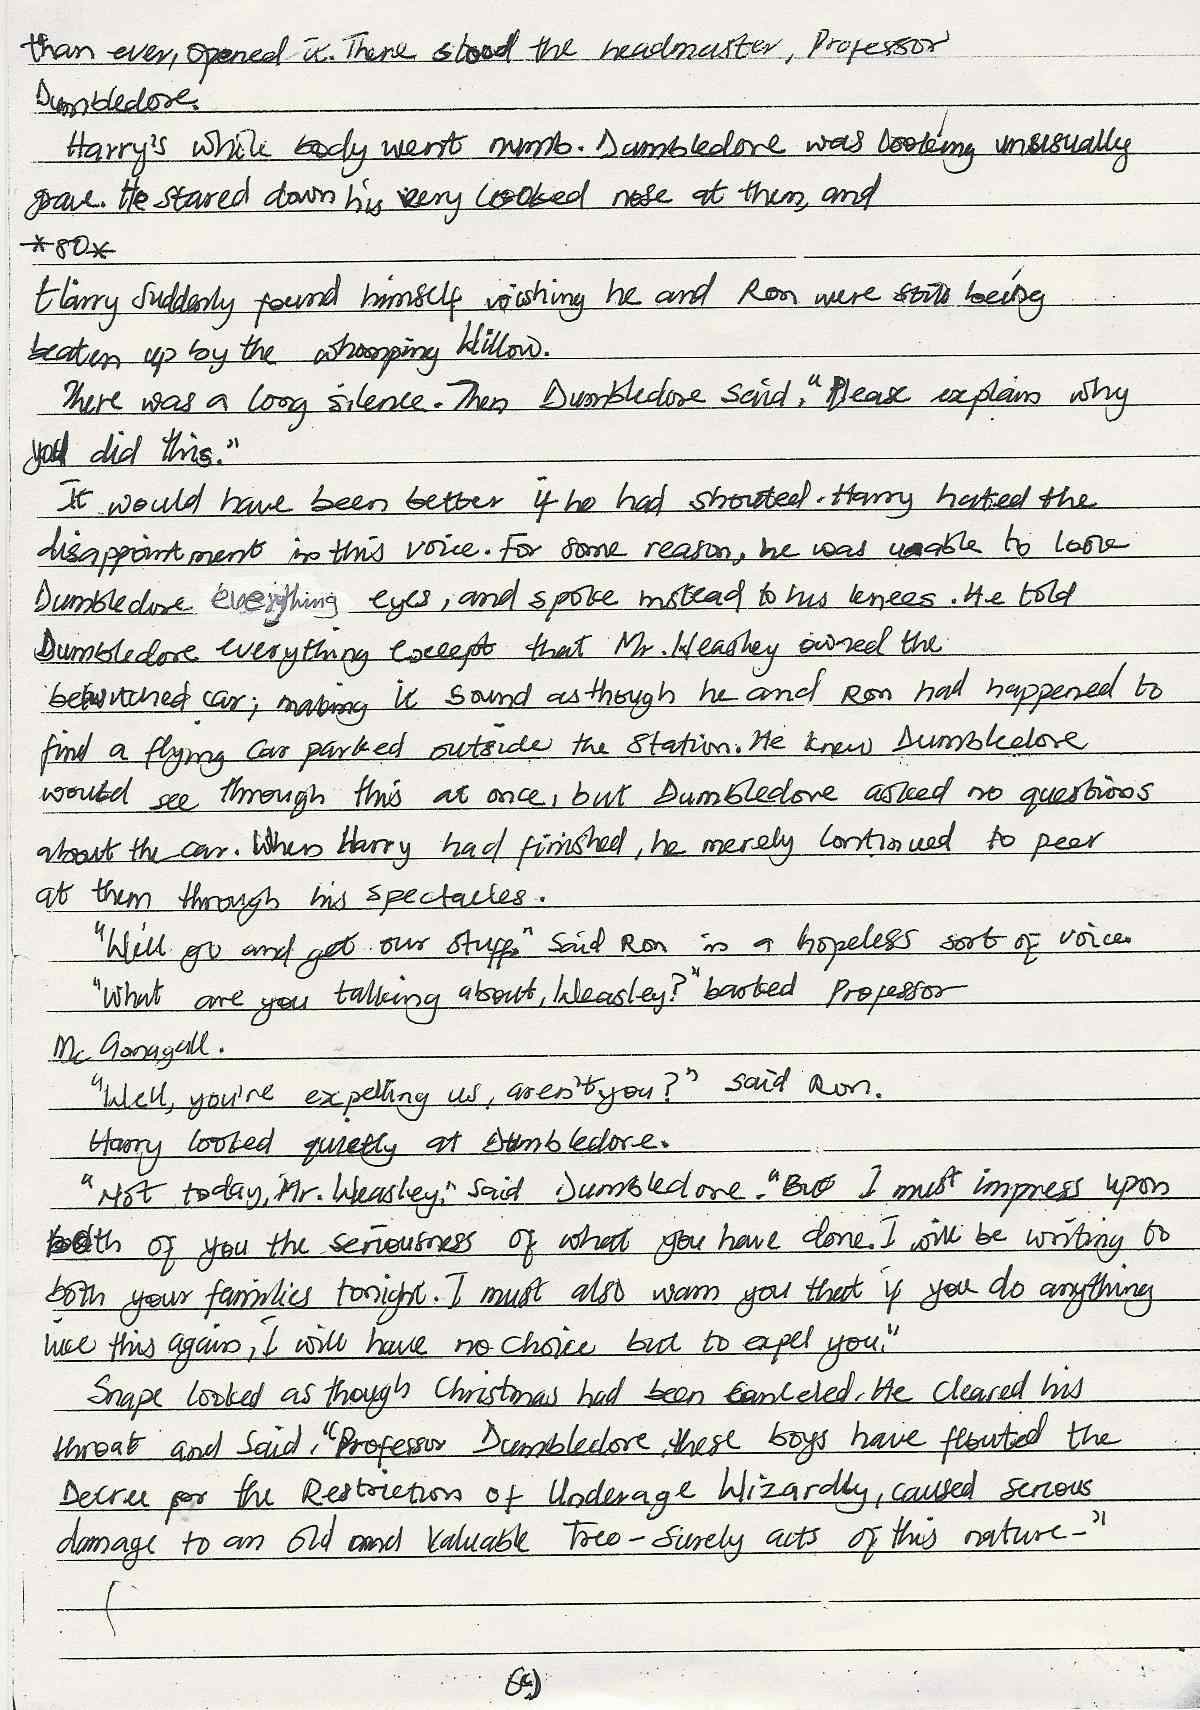 than ever, opened it. There stood the headmaster, Professor
Dumbledore.
Harry's while body went numb. Dumbledore was looking unsusually
grave. He stared down his very looked nose at them, and
*80*
Harry suddenly found himself wishing he and Ron were still being
beaten up by the whomping Willow.
There was a long silence. Then Dumbledore said, "Please explain why
you did this."
It would have been better if he had shouted. Harry hated the
disappointment in this voice. For some reason, he was unable to look
Dumbledore everything eyes, and spoke instead to his knees. He told
Dumbledore everything except that Mr. Weasley owned the
bewitched car; making it sound as though he and Ron had happened to
find a flying car parked outside the station. He knew Dumbledore
would see through this at once, but Dumbledore asked no questions
about the car. When Harry had finished, he merely continued to peer
at them through his spectacles.
"We'll go and get our stuff," said Ron in a hopeless sort of voice.
"What are you talking about, Weasley?" barked Professor
Mc Gonagall.
"Well, you're expelling us, aren't you?" said Ron.
Harry looked quietly at Dumbledore.
"Not today, Mr. Weasley," said Dumbledore. "But I must impress upon
both of you the seriousness of what you have done. I will be writing to
both your families tonight. I must also warn you that if you do anything
like this again, I will have no choice but to expel you."
Snape looked as though Christmas had been canceled. He cleared his
throat and said, "Professor Dumbledore, these boys have flouted the
Decree for the Restriction of Underage Wizardly, caused serious
damage to an old and valuable Tree - surely acts of this nature-"